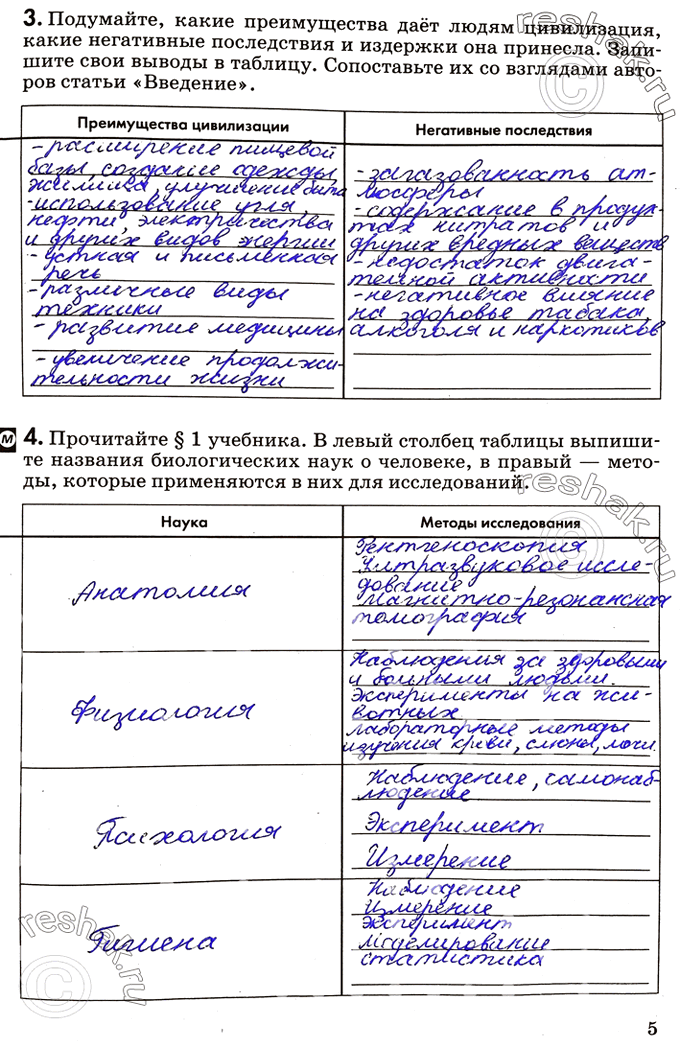 3. Подумайте, какие преимущества даёт людям цивилизация,
какие негативные последствия и издержки она принесла. Запи-
шите свои выводы в таблицу. Сопоставьте их со взглядами авто-
ров статьи «Введение».
Преимущества цивилизации
- расширение пищевой
базы, создание одежды,
жилища, улучшение быта
- использование угля,
нефти, электричества
и других видов энергии
- устная и письменная
речь
- различные виды
техники
- развитие медицины
- увеличение продолжи-
тельности жизни
Негативные последствия
- загазованность ат-
мосферы
- содержание в продук-
тах нитратов и
других вредных веществ
- недостаток двига-
тельной активности
- негативное влияние
на здоровье табака,
алкоголя и наркотиков
М 4. Прочитайте § 1 учебника. В левый столбец таблицы выпиши-
те названия биологических наук о человеке, в правый — мето-
ды, которые применяются в них для исследований.
Наука
Методы исследования
Анатомия
Рентгеноскопия
Ултразвуковое иссле-
дование
Магнитно-резонансная
томография
Физиология
Наблюдения за здоровыми
и больными людьми.
Эксперименты на жи-
вотных
лабораторные методы
изучения крови, слюны, мочи.
Психология
Наблюдение, самонаб-
людение
Эксперимент
Измерение
Гигиена
Наблюдение
Измерение
Эксперимент
Моделирование
статистика
5
reshak.ru
reshak.ru
reshak.ru
reshak.ru